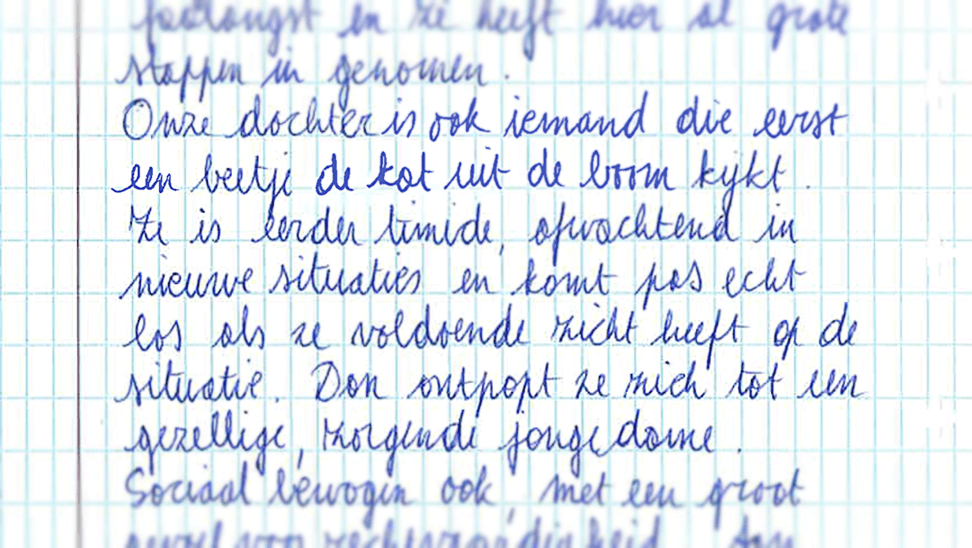 en ze heeft hier al grote
stappen in genomen.
Onze dochter is ook iemand die eerst
een beetje de kat uit de boom kijkt.
Ze is eerder timide, afwachtend in
nieuwe situaties en komt pas echt
los als ze voldoende zicht heeft op de
situatie. Dan ontpopt ze zich tot een
gezellige, zorgende jonge dame.
Sociaal bewogen ook, met een groot